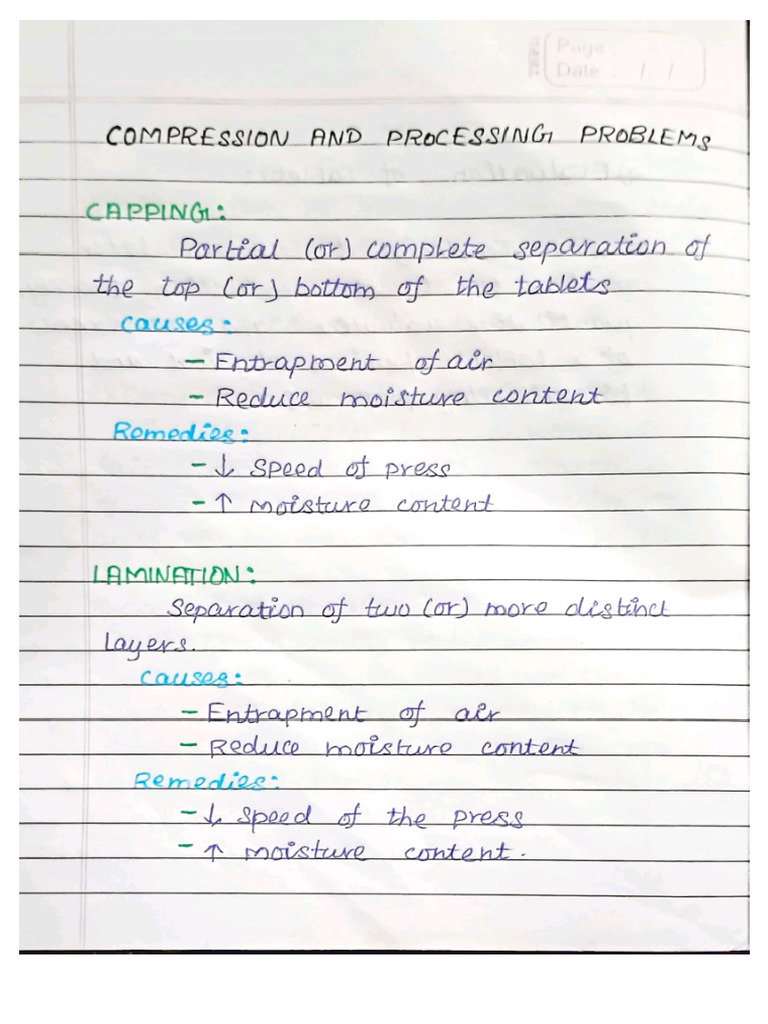 Page :
Date : / /
COMPRESSION AND PROCESSING PROBLEMS
CAPPING:
Partial (or) complete separation of
the top (or) bottom of the tablets
causes:
- Entrapment of air
- Reduce moisture content
Remedies:
- ↓ speed of press
- ↑ moisture content
LAMINATION:
Separation of two (or) more distinct
layers.
causes:
- Entrapment of air
- Reduce moisture content
Remedies:
- ↓ speed of the press
- ↑ moisture content.